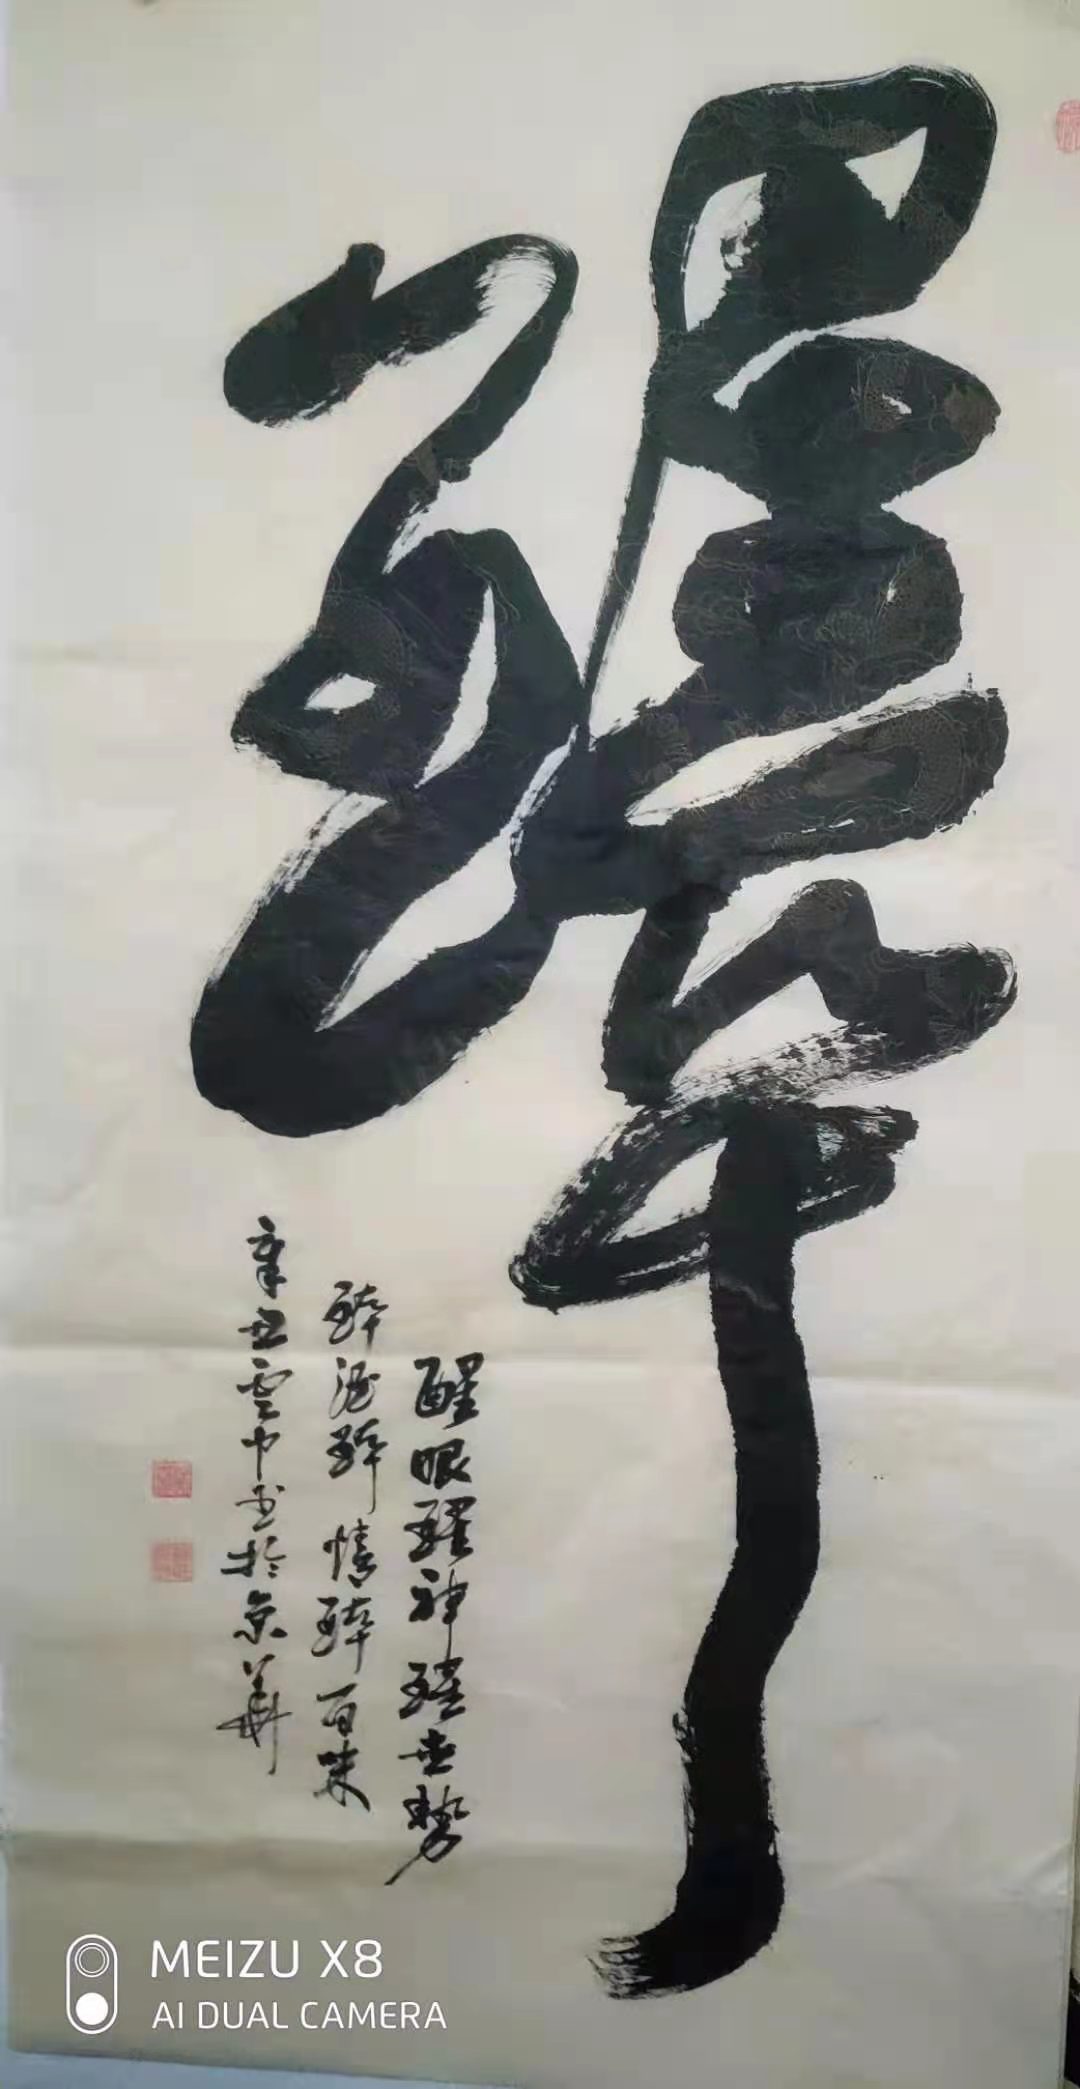 醒眼醒神醒世勢
醉酒醉情醉百味
辛丑雲中书於京華
MEIZU X8
AI DUAL CAMERA